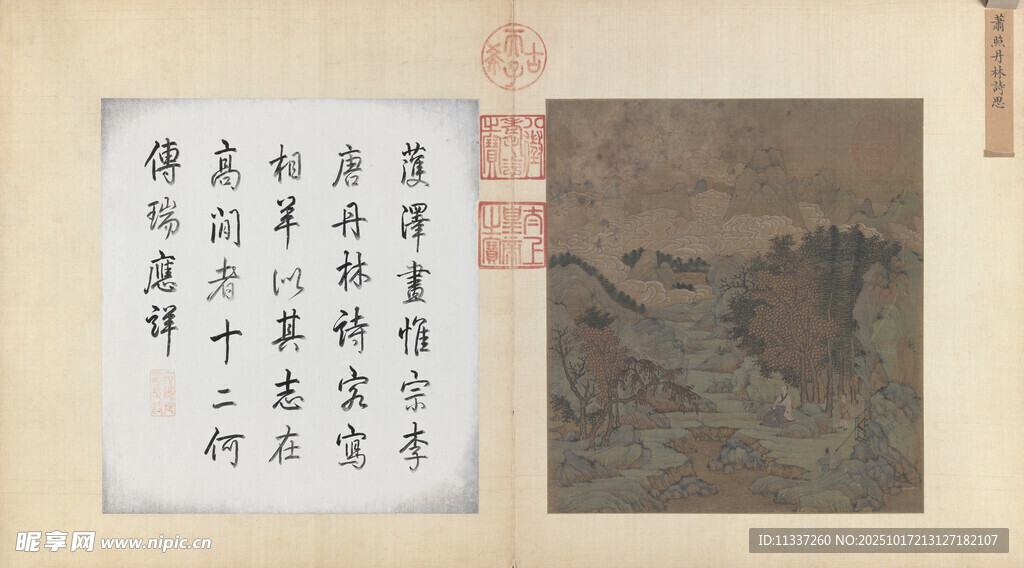 蕭照丹林詩思
古希天子
八徵耄念之寶
太上皇帝之寶
濩澤畫惟宗李
唐丹林詩客寫
相羊以其志在
高閒者十二何
傳瑞應詳
昵享网 www.nipic.cn
ID:11337260 NO:20251017213127182107